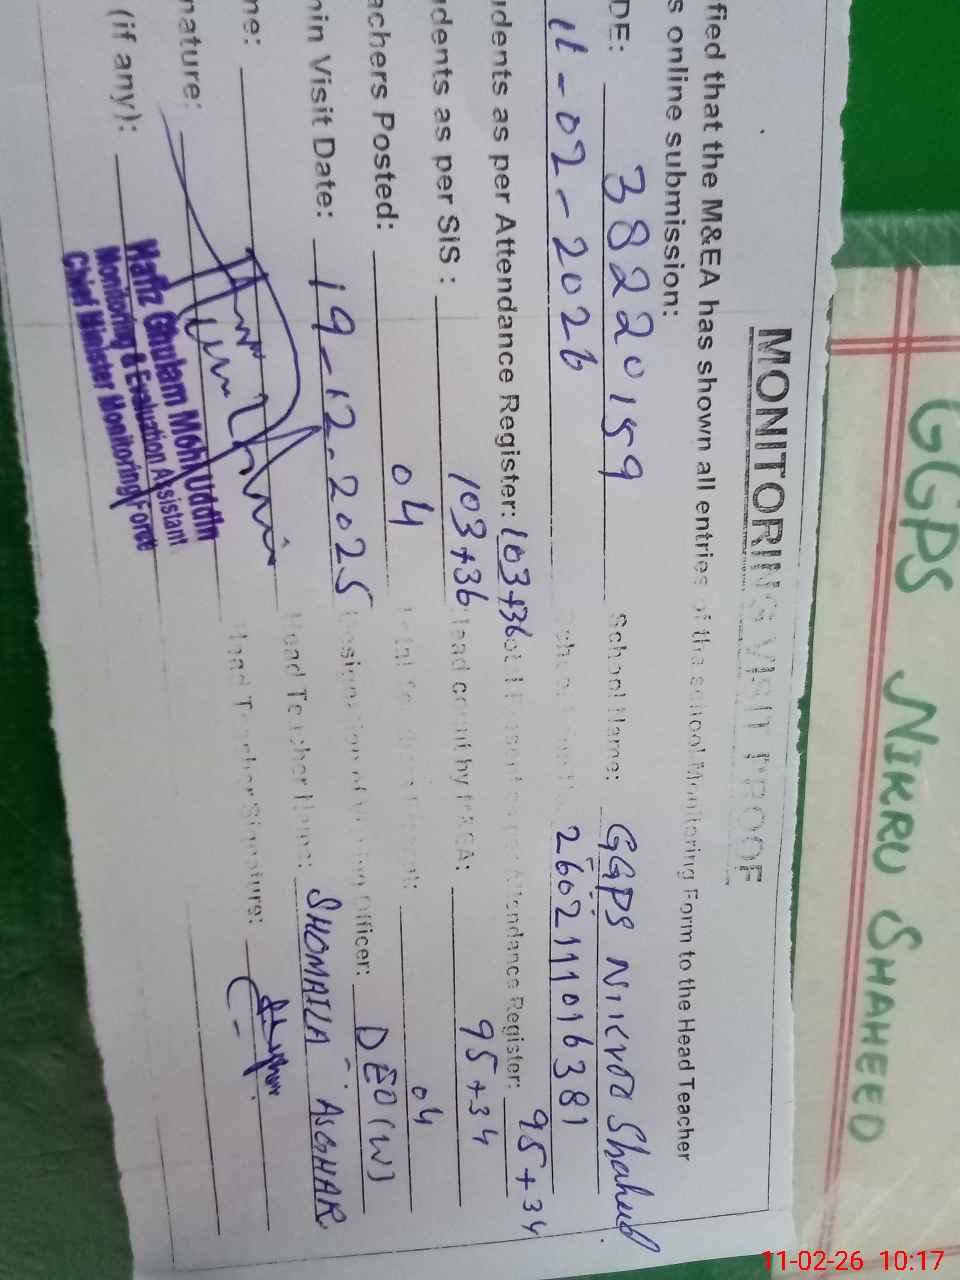 GGPS NIKRU SHAHEED
MONITORING VISIT PROOF
fied that the M&EA has shown all entries of the school Monitoring Form to the Head Teacher
s online submission:
DE: 38220159 School Name: GGPS Nikroo Shaheed
11-02-2026 2602111016381
udents as per Attendance Register: 103+36 Attendance Register: 95+34
udents as per SIS : 103+36 Head count by MEA: 95+34
achers Posted: 04 04
min Visit Date: 19-12-2025 Designation of Visiting Officer: DEO (W)
me: Head Teacher Name: SHOMAILA ASGHAR
nature: Head Teacher Signature:
(if any):
Hafiz Ghulam Mohiuddin
Monitoring & Evaluation Assistant
Chief Minister Monitoring Force
11-02-26 10:17